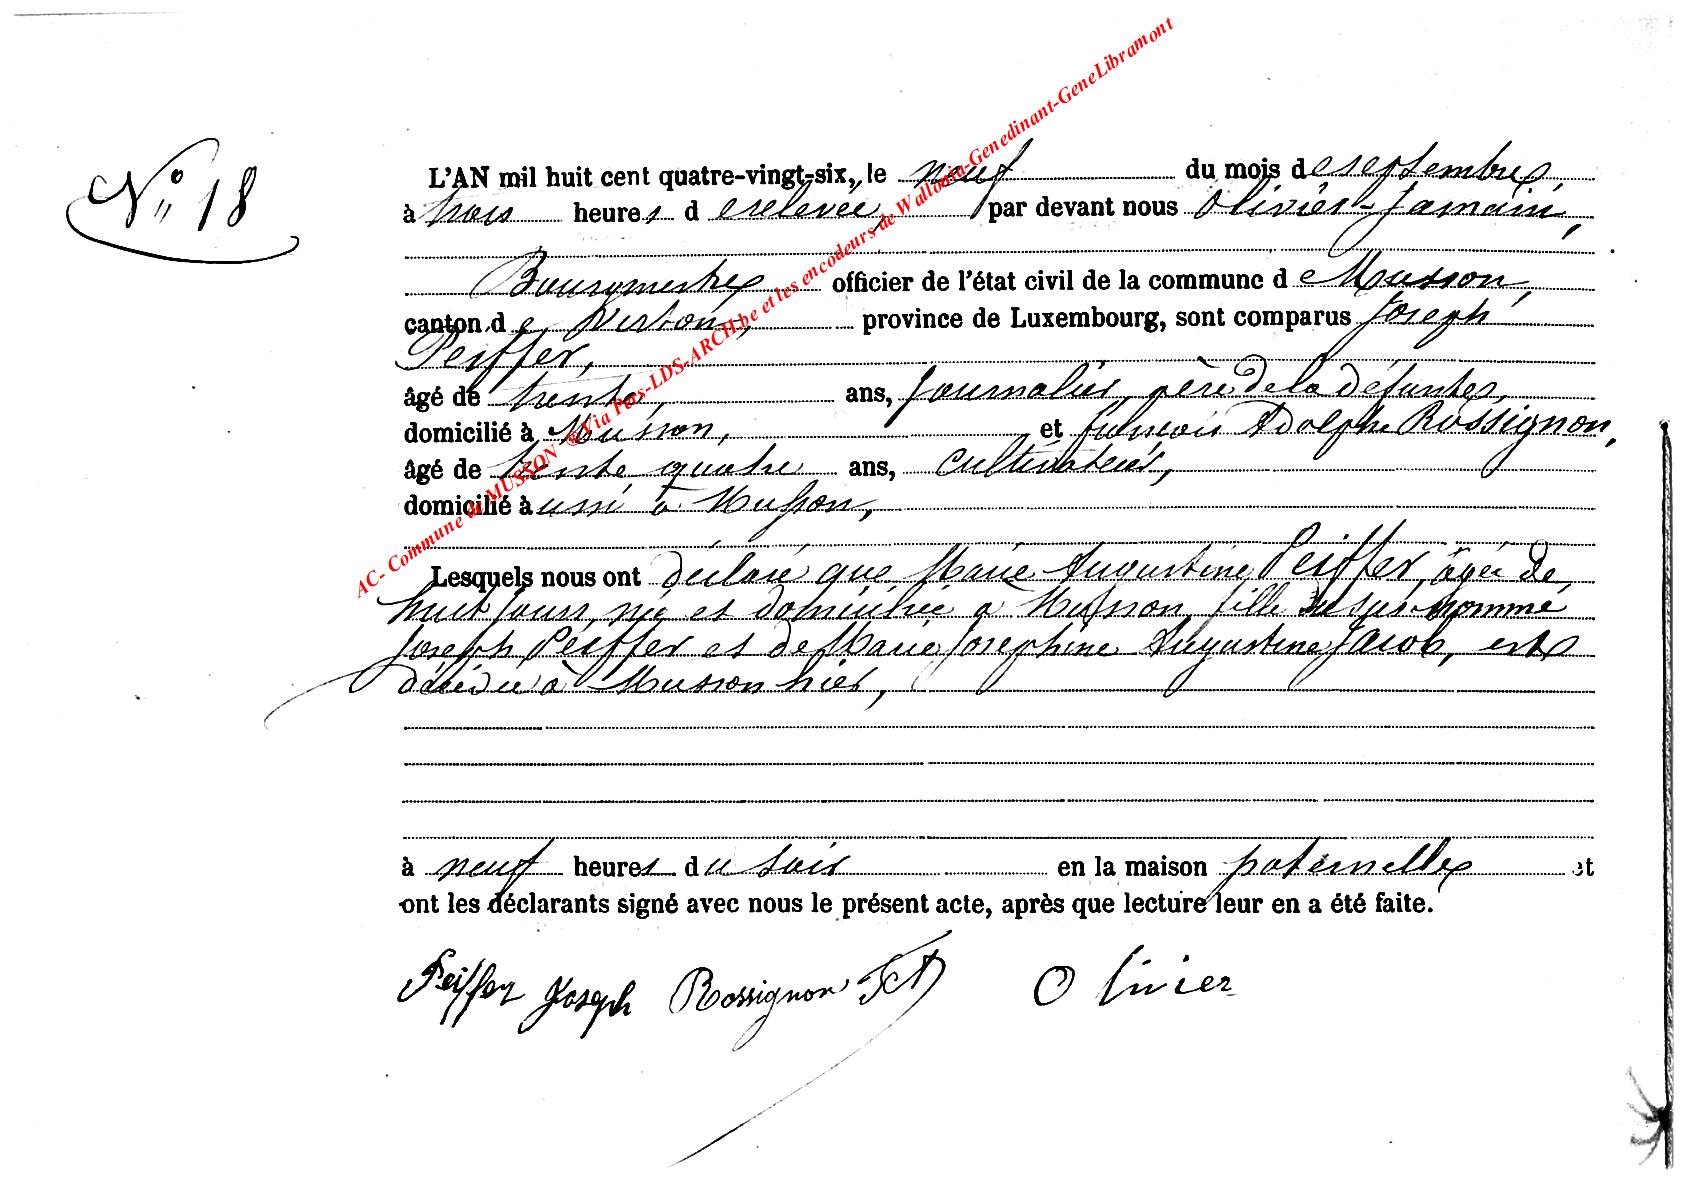 N° 18
L'AN mil huit cent quatre-vingt-six, le neuf du mois de septembre,
à trois heures de relevée, par devant nous Olivier-Jamain,
Bourgmestre officier de l'état civil de la commune de Musson,
canton de Virton, province de Luxembourg, sont comparus Joseph
Peiffer,
âgé de trente, ans, journalier, père de la défunte,
domicilié à Musson, et François Adolphe Rossignon,
âgé de trente quatre ans, cultivateur,
domicilié aussi à Musson,
Lesquels nous ont déclaré que Marie Augustine Peiffer, âgée de
huit jours, née et domiciliée à Musson, fille du susnommé
Joseph Peiffer et de Marie Josephine Augustine Jacob, est
décédée à Musson hier,
à neuf heures du soir en la maison paternelle et
ont les déclarants signé avec nous le présent acte, après que lecture leur en a été faite.
Peiffer Joseph Rossignon FA Olivier
AC- Commune de MUSSON ©Via Pers-LDS-ARCH.be et les encodeurs de Wallonia-Genedinant-GeneLibramont